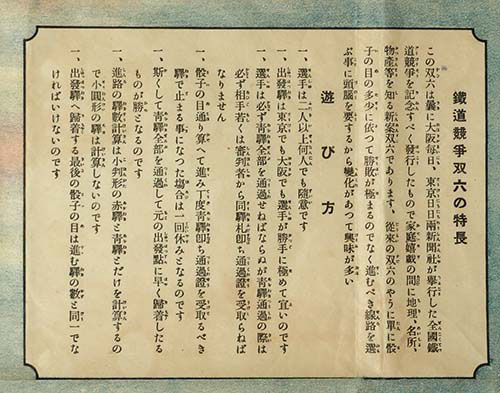 鐵道競爭双六の特長
この双六は曩に大阪毎日、東京日日兩新聞社が擧行した全國鐵
道競爭を記念すべく發行したもので家庭嬉戯の間に地理、名所、
物産等を知る新案双六であります、從來の双六のやうに單に骰
子の目の多少に依つて勝敗が極まるのでなく進むべき線路を選
ぶ事に頭腦を要するから變化があつて興味が多い
遊び方
一、選手は二人以上何人でも隨意です
一、出發驛は東京でも大阪でも選手が勝手に極めて宜いのです
一、選手は必ず靑驛全部を通過せねばならぬが靑驛通過の際は
必ず相手若くは審判者から同驛札卽ち通過證を受取らねば
なりません
一、骰子の目通り算へて進み丁度靑驛卽ち通過證を受取るべき
驛で止まる事になつた塲合は一回休みとなるのです
一、斯くして靑驛全部を通過して元の出發點に早く歸着したる
ものが勝となるのです
一、進路の驛數計算は小判形の赤驛と靑驛とだけを計算するの
で小圓形の驛は計算しないのです
一、出發驛へ歸着する最後の骰子の目は進む驛の數と同一でな
ければいけないのです